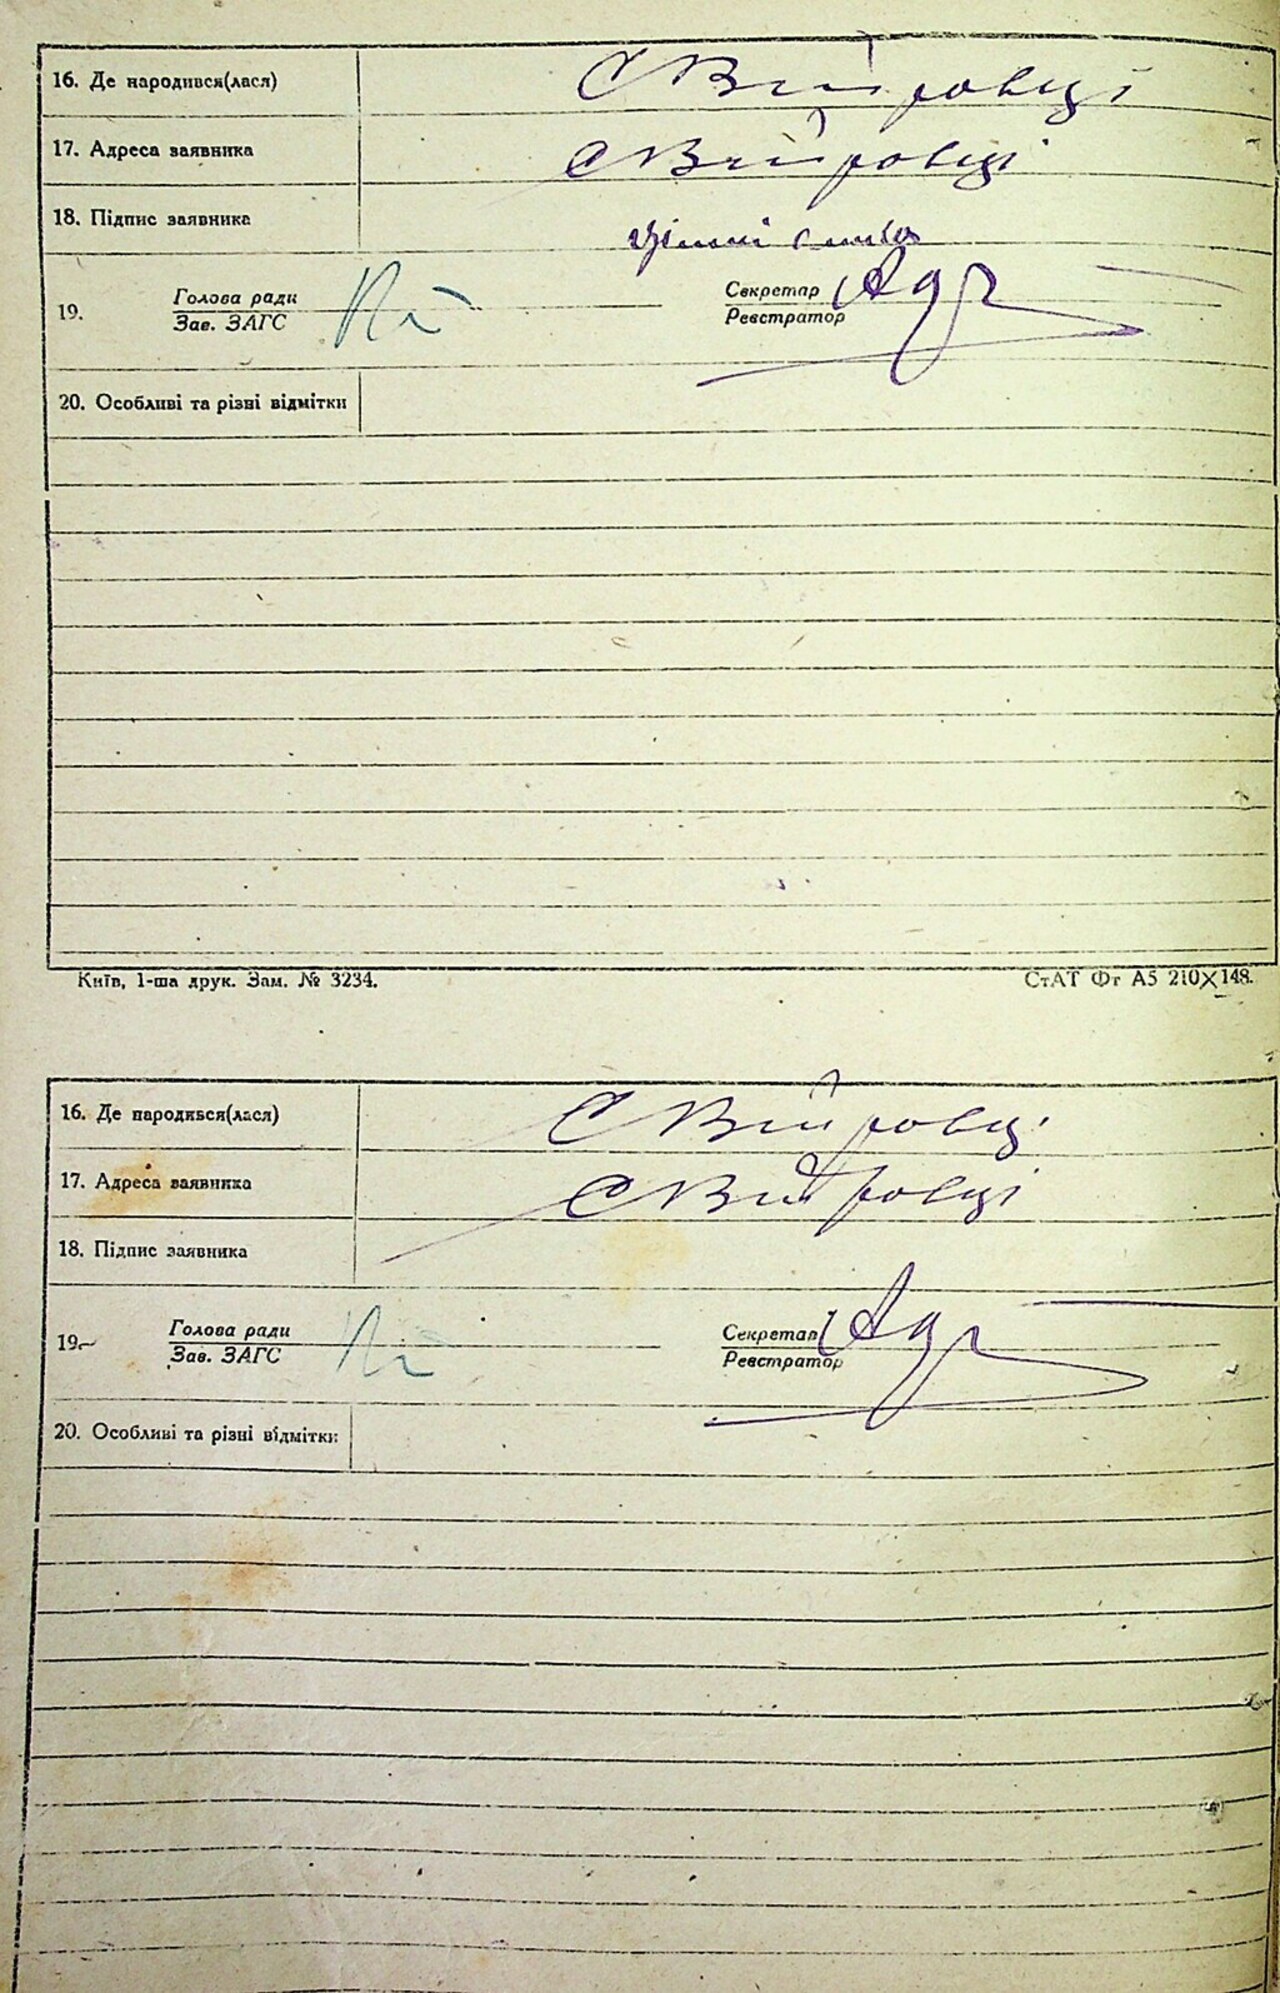 16. Де народився(лася) С Війтовці
17. Адреса заявника С Війтовці
18. Підпис заявника
19. Голова ради Секретар
Зав. ЗАГС Реєстратор
20. Особливі та різні відмітки
Київ, 1-ша друк. Зам. № 3234. СтАТ Фг А5 210X148.
16. Де народився(лася) С Війтовці
17. Адреса заявника С Війтовці
18. Підпис заявника
19. Голова ради Секретар
Зав. ЗАГС Реєстратор
20. Особливі та різні відмітки